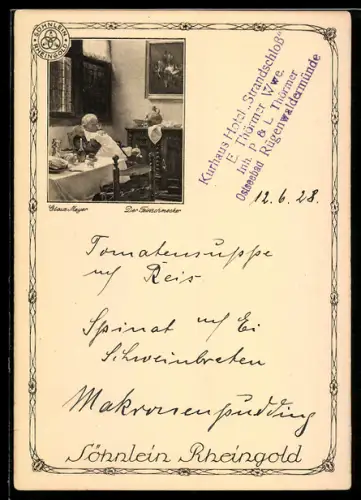 SÖHNLEIN
RHEINGOLD
Kurhaus Hotel „Strandschloß"
E. Thörmer Wwe.
Inh. P. & L. Thörmer
Ostseebad Rügenwaldermünde
Claus Meyer Der Feinschmecker
12.6.28.
Tomatensuppe
m/ Reis
Spinat m/ Ei
Schweinbraten
Makronenpudding
Söhnlein Rheingold